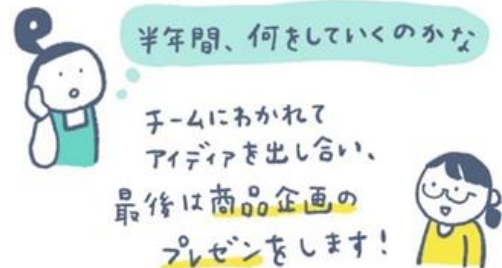 半年間、何をしていくのかな
チームにわかれて
アイディアを出し合い、
最後は商品企画の
プレゼンをします!